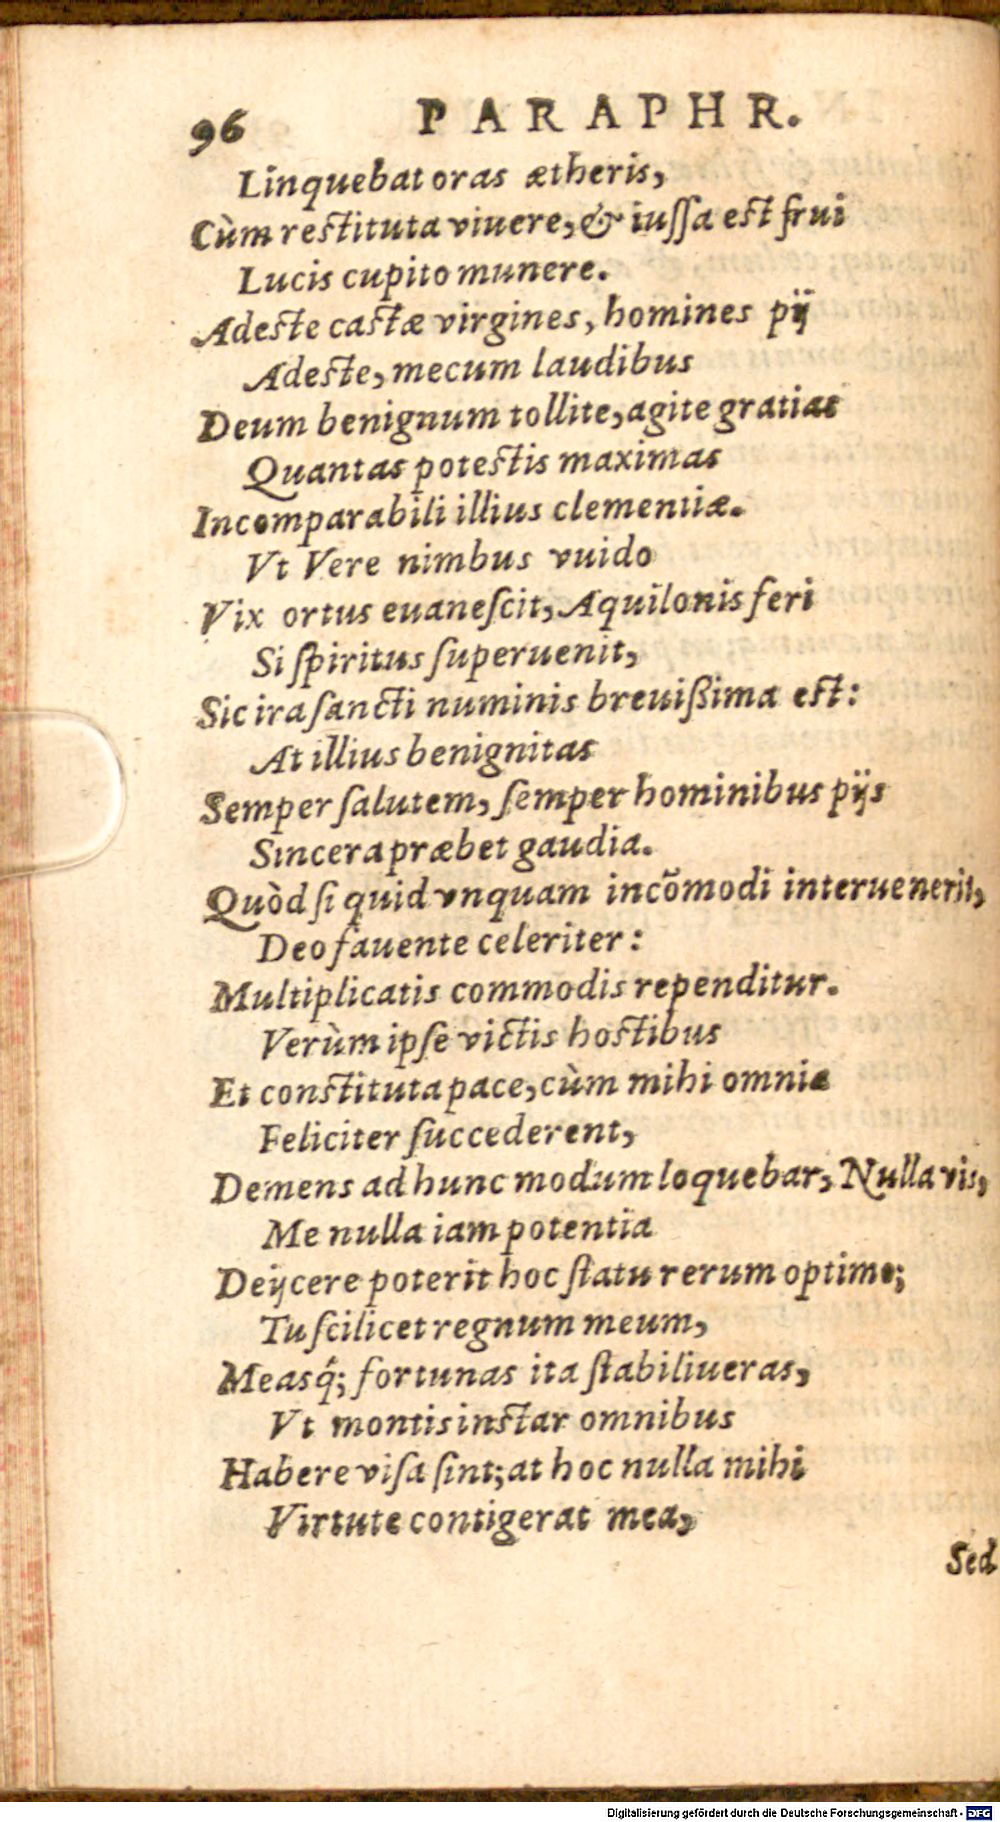 96 PARAPHR.
Linquebat oras ætheris,
Cùm restituta viuere, & iuſſa est frui
Lucis cupito munere.
Adeste castæ virgines, homines pij
Adeste, mecum laudibus
Deum benignum tollite, agite gratias
Quantas potestis maximas
Incomparabili illius clementiæ.
Vt Vere nimbus vuido
Vix ortus euaneſcit, Aquilonis feri
Si ſpiritus ſuperuenit,
Sic ira ſancti numinis breuißima est:
At illius benignitas
Semper ſalutem, ſemper hominibus pijs
Sincera præbet gaudia.
Quòd ſi quid vnquam incõmodi interuenerit,
Deo fauente celeriter:
Multiplicatis commodis rependitur.
Verùm ipſe victis hostibus
Et constituta pace, cùm mihi omnia
Feliciter ſuccederent,
Demens ad hunc modum loquebar, Nulla vis,
Me nulla iam potentia
Deijcere poterit hoc ſtatu rerum optimo;
Tu ſcilicet regnum meum,
Measq́; fortunas ita ſtabiliueras,
Vt montis instar omnibus
Habere viſa ſint; at hoc nulla mihi
Virtute contigerat mea,
Sed
Digitalisierung gefördert durch die Deutsche Forschungsgemeinschaft - DFG